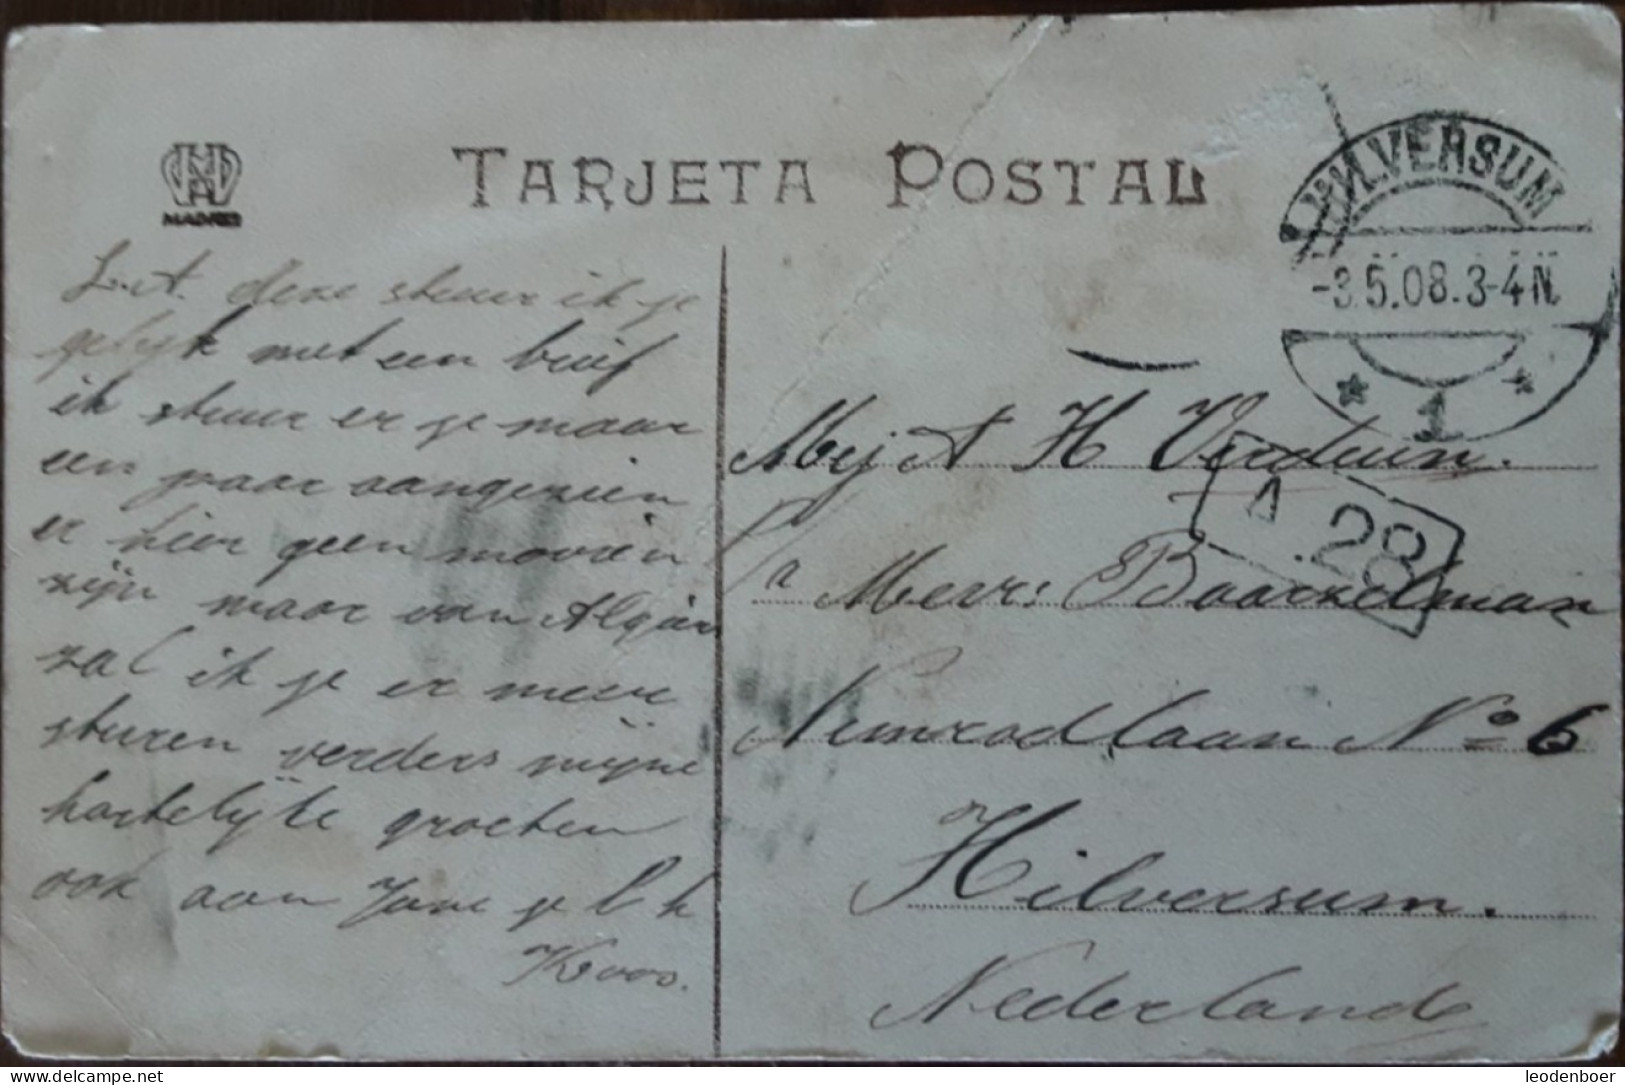 MADRID
TARJETA POSTAL
HILVERSUM
-3.5.08.3-4N.
1
L.A. deze stuur ik je
gelijk met een brief
ik stuur er je maar
een paar aangezien
er hier geen mooien
zijn maar van Algiers
zal ik je er meer
sturen verders mijne
hartelijke groeten
ook aan Jane je l h
Koos.
Mej A H Verduin.
A.28
Mevr: Baarzelman
Nimrodlaan No 6
Hilversum.
Nederland
leodenboer